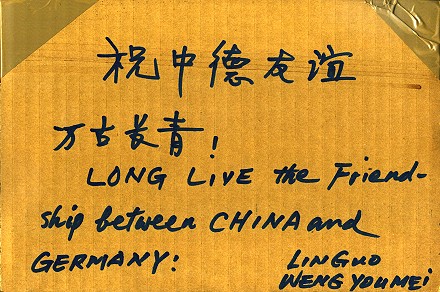 祝中德友谊
万古长青!
LONG LIVE the Friend-
ship between CHINA and
GERMANY!
LIN GUO
WENG YOUMEI